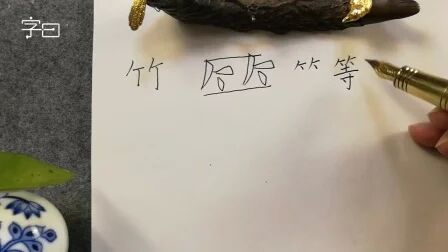 字曰
竹 ⺮ 等